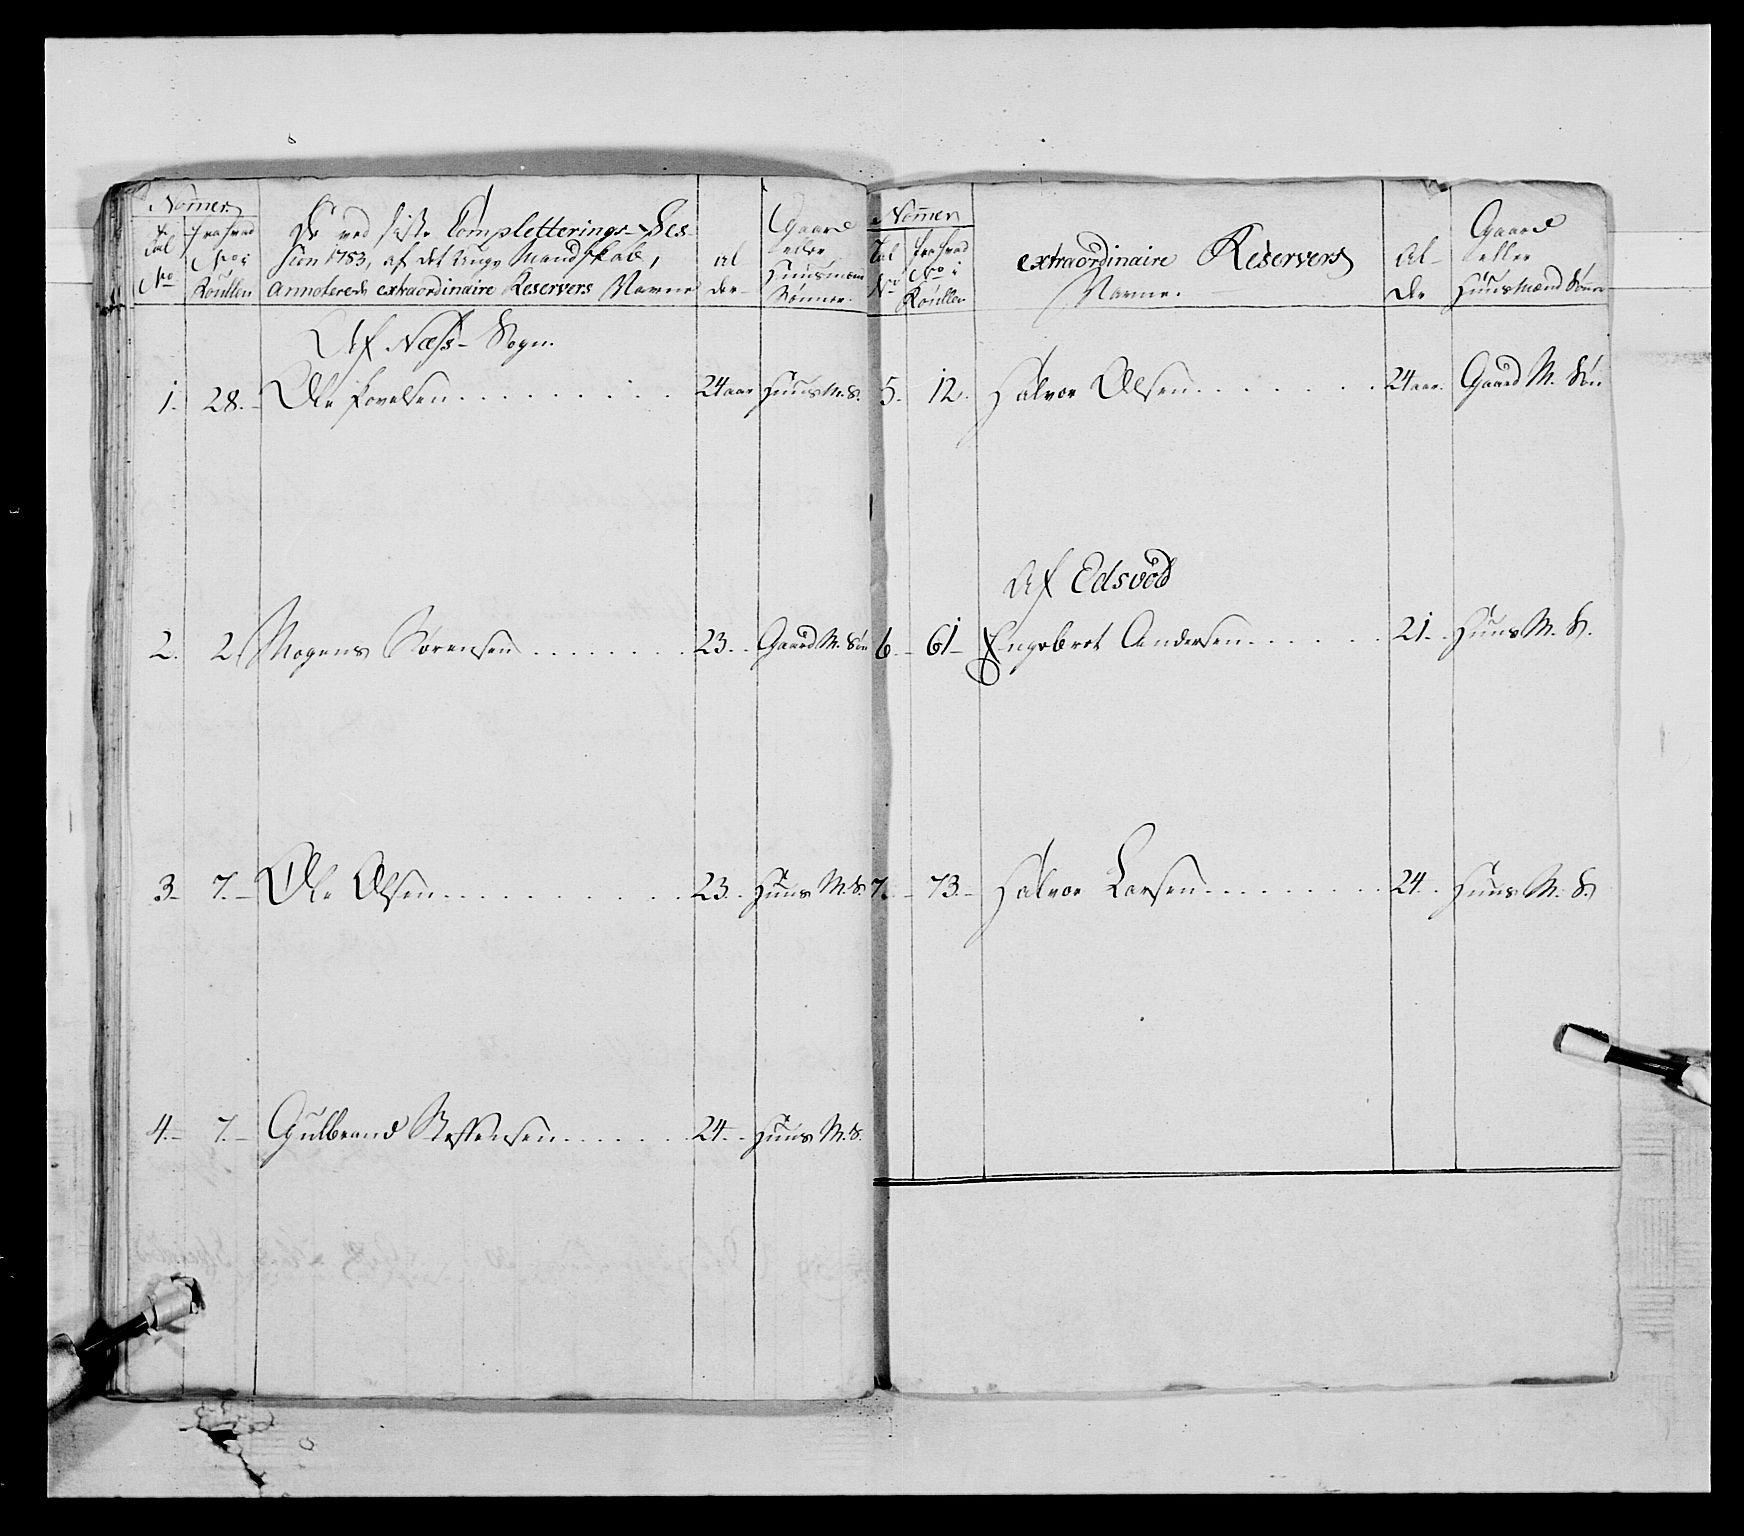 Nomer
Tal No
fra hvad No i Roullen
De ved siste Completterings-Ses-
sion 1783, af det unge Mandskab,
Annoterede extraordinaire Reservers Navne
Al
der
Gaard
eller
Huusmænd
Sønner.
Af Næss- Sogn.
1. 28. Ole Povelsen 24 aar Huus M. S.
2. 2. Mogens Sørensen 23. Gaard M. Søn
3. 7. Ole Olsen 23. Huus M. S.
4. 7. Gulbrand Steffensen 24. Huus M. S.
Nomer
Tal No
fra hvad No i Roullen
extraordinaire Reservers
Navne.
Al-
der
Gaard
eller
Huusmænd Sønner
5. 12. Halvor Olsen 24 aar. Gaard M. Søn
Af Edsvod
6. 61 Engebret Andersen 21. Huus M. S.
7. 73. Halvor Larsen 24. Huus M. S.